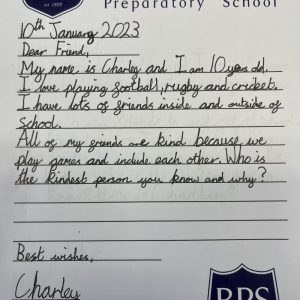 Preparatory School
est. 1899
10th January 2023
Dear Friend,
My name is Charley and I am 10 years old.
I love playing football, rugby and cricket.
I have lots of friends inside and outside of
school.
All of my friends are kind because we
play games and include each other. Who is
the kindest person you know and why?
Best wishes,
Charley
RPS